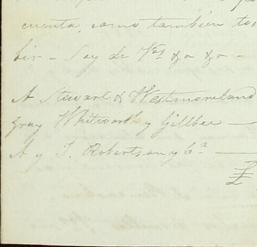 cuenta, como tambien
bir - Soy de Vs &a &a -
A Stewart & Westmoreland
Gray Whitworth y Gillbee —
A y T. Robertson y Ca —
£